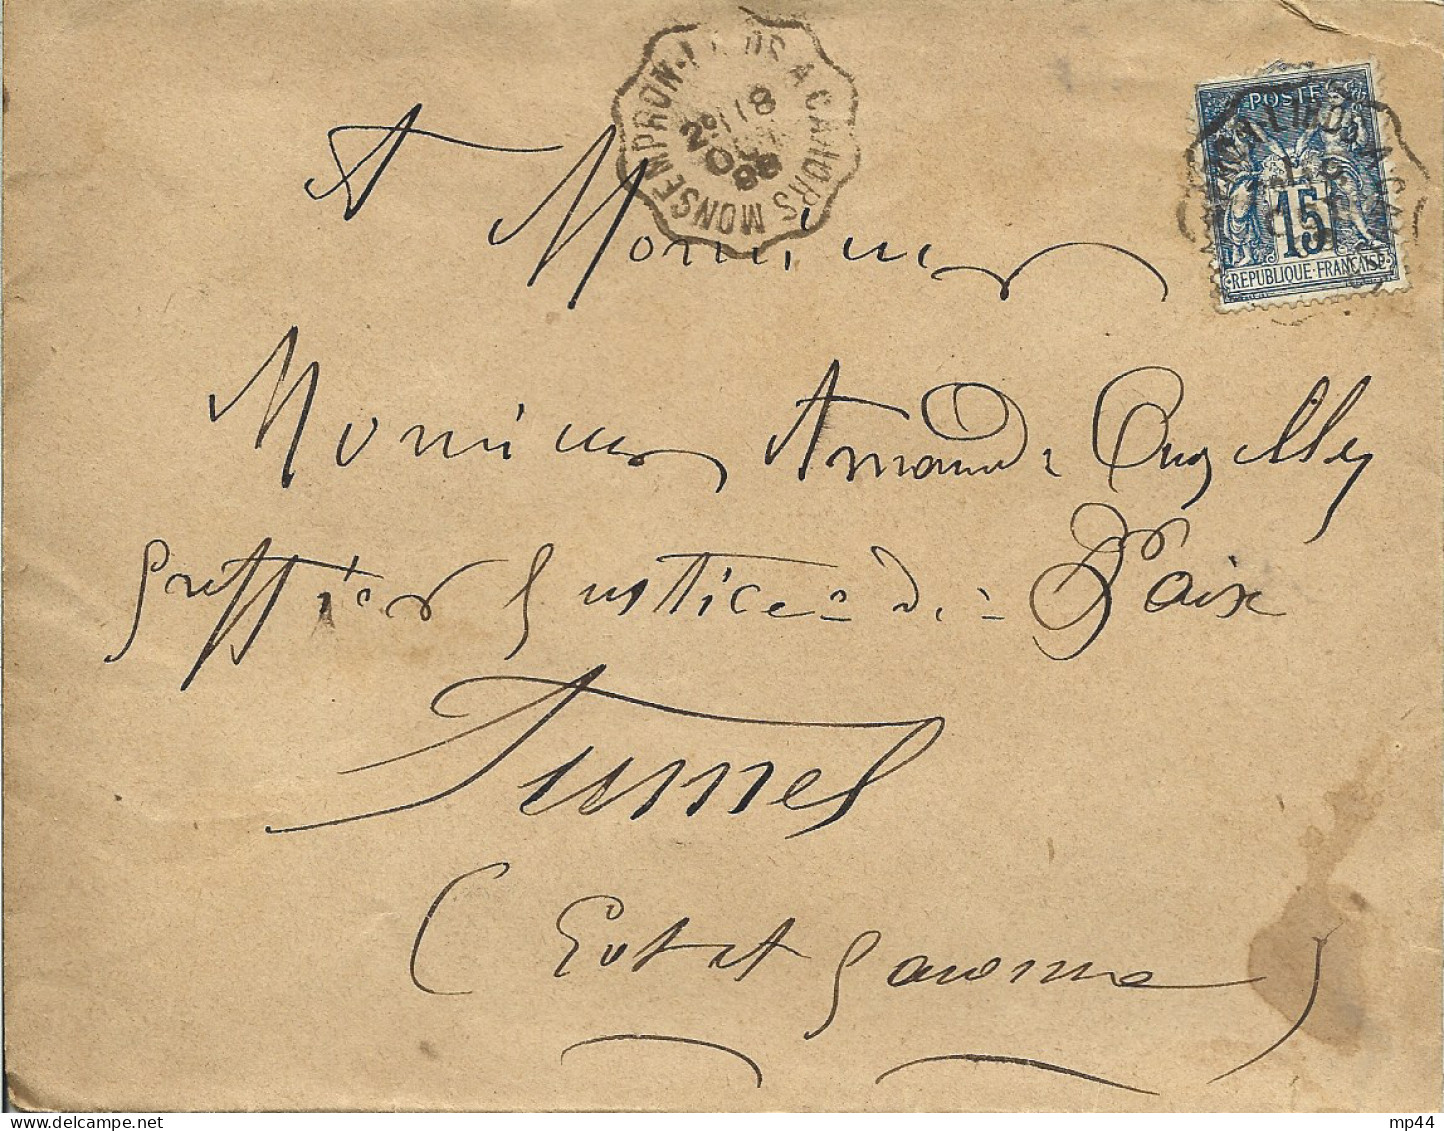 MONSEMPRON-LIBOS A CAHORS
POSTE
15
REPUBLIQUE FRANÇAISE
A Monsieur
Monsieur Armand
greffier Justice de Paix
Fumel
(Lot et Garonne)
delcampe.net
mp44